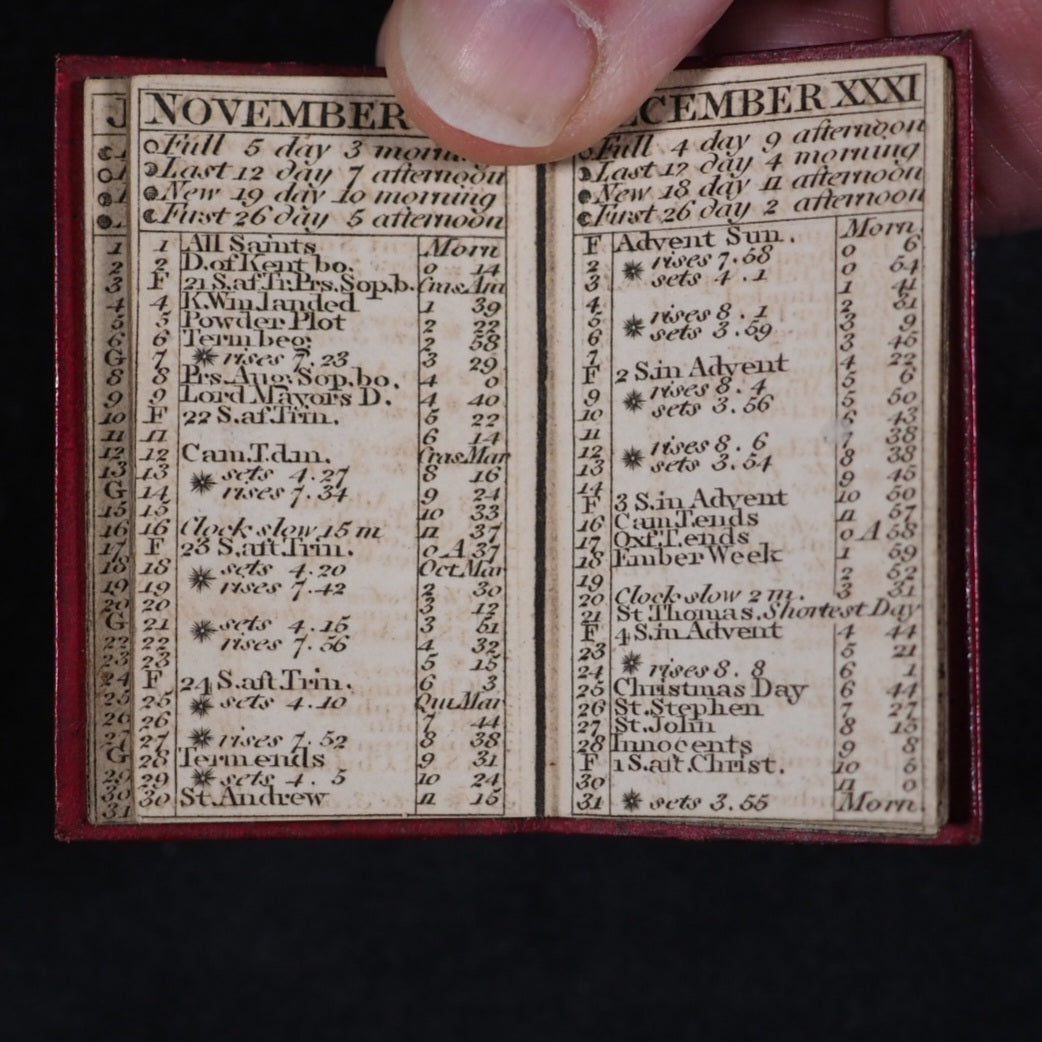 J
1
2
3
4
5
6
G
8
9
10
11
12
13
G
15
16
17
18
19
20
G
22
23
24
25
26
27
G
29
30
31
NOVEMBER
Full 5 day 3
Last 12 day 7 afternoon
New 19 day 10 morning
First 26 day 5 afternoon
1 All Saints Morn
2 D.of Kent bo. 0 14
F 21 S.af Tr. Prs.Sop.b. Cras.Ani
4 K.Wm.landed 1 39
5 Powder Plot 2 22
6 Term beg: 2 58
7 rises 7.23 3 29
8 Prs.Aug:Sop.bo. 4 0
9 Lord Mayors D. 4 40
F 22 S.af.Trin. 5 22
11 6 14
12 Cam.T.d.m. Cras.Mar
13 sets 4.27 8 16
14 rises 7.34 9 24
15 10 33
16 Clock slow 15 m 11 37
F 23 S.aft.Trin. 0 A 37
18 sets 4.20 Oct.Mar
19 rises 7.42 2 30
20 3 12
21 sets 4.15 3 51
22 rises 7.56 4 32
23 5 15
F 24 S.aft.Trin. 6 3
25 sets 4.10 Qu.Mar
26 7 44
27 rises 7.52 8 38
28 Term ends 9 31
29 sets 4.5 10 24
30 St.Andrew 11 15
CEMBER XXXI
Full 4 day 9 afternoon
Last 12 day 4 morning
New 18 day 11 afternoon
First 26 day 2 afternoon
F Advent Sun. Morn
2 rises 7.58 0 6
3 sets 4.1 0 54
1 41
4 rises 8.1 2 31
5 sets 3.59 3 9
6 3 45
7 4 22
F 2 S.in Advent 5 6
9 rises 8.4 5 50
10 sets 3.56 6 43
11 7 38
12 rises 8.6 8 38
13 sets 3.54 9 45
14
F 3 S.in Advent 10 50
16 Cam.T.ends 11 57
17 Oxf.T.ends 0 A 58
18 Ember Week 1 59
19 2 52
20 Clock slow 2 m. 3 31
21 St.Thomas. Shortest Day
F 4 S.in Advent 4 44
23 5 21
24 rises 8.8 6 1
25 Christmas Day 6 44
26 St.Stephen 7 27
27 St.John 8 15
28 Innocents 9 8
F 1 S.aft.Christ. 10 6
30 11 0
31 sets 3.55 Morn